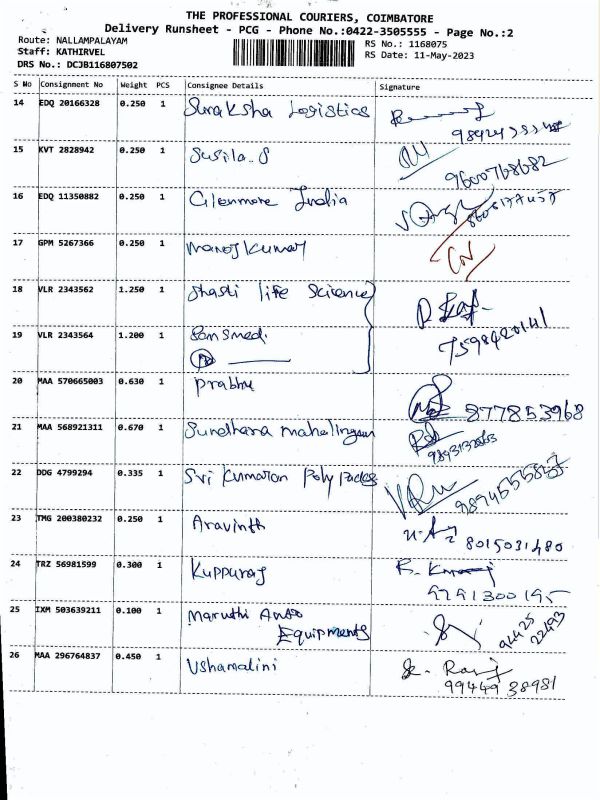 THE PROFESSIONAL COURIERS, COIMBATORE
Delivery Runsheet - PCG - Phone No.:0422-3505555 - Page No.:2
Route: NALLAMPALAYAM RS No.: 1168075
Staff: KATHIRVEL RS Date: 11-May-2023
DRS No.: DCJB116807502
S No Consignment No Weight PCS Consignee Details Signature
14 EDQ 20166328 0.250 1 Suraksha Logistics
15 KVT 2828942 0.250 1 Susila. S
9600768682
16 EDQ 11350882 0.250 1 Glenmore India
17 GPM 5267366 0.250 1 Manojkumar
18 VLR 2343562 1.250 1 Shasti life Science
19 VLR 2343564 1.200 1 Sansmed.
7598420141
20 MAA 570665003 0.630 1 prabhu
977853968
21 MAA 568921311 0.670 1 Sundhara mahalingam
22 DDG 4799294 0.335 1 Sri Kumaran Poly Packs
23 TMG 200380232 0.250 1 Aravinth
8015031480
24 TRZ 56981599 0.300 1 Kuppuraj
9291300195
25 IXM 503639211 0.100 1 Maruthi Auto
Equipments
94425
22493
26 MAA 296764837 0.450 1 Ushamalini
99449 38981